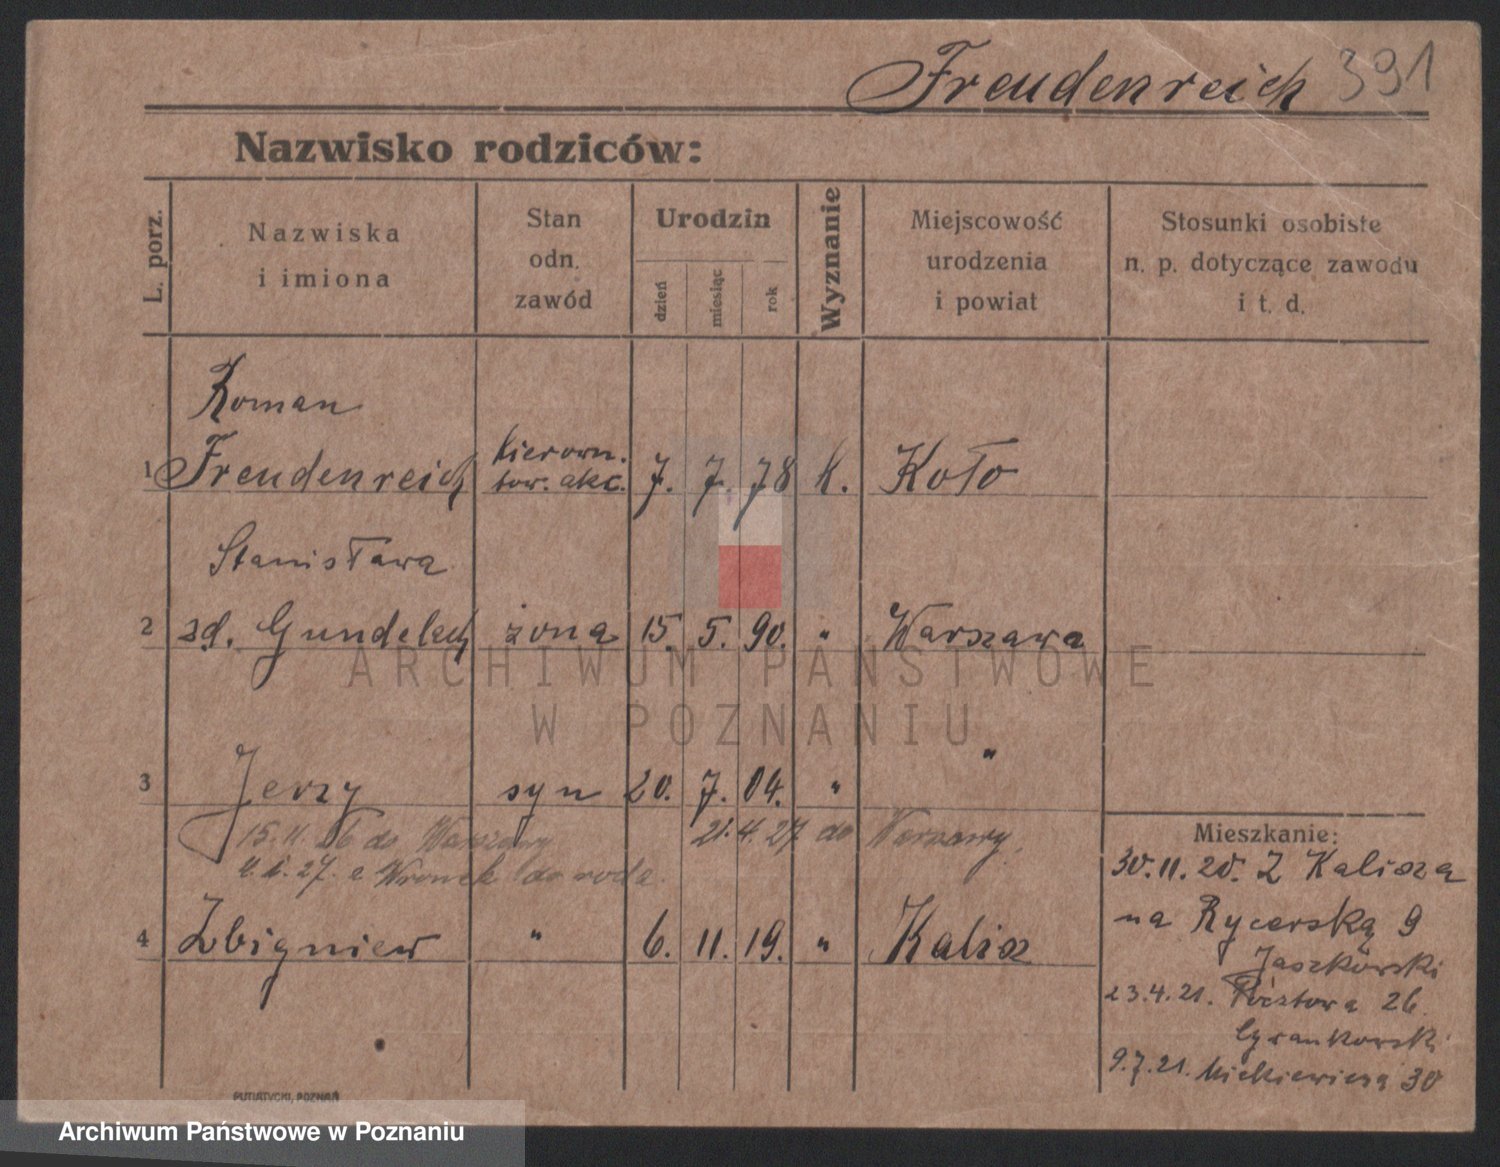 Freudenreich 391
Nazwisko rodziców:
L. porz.
Nazwiska
i imiona
Stan
odn.
zawód
Urodzin
dzień
miesiąc
rok
Wyznanie
Miejscowość
urodzenia
i powiat
Stosunki osobiste
n. p. dotyczące zawodu
i t. d.
Roman
1 Freudenreich kierown. tow. akc. 7. 7. 78 k. Koło
Stanisława
2 zd. Gundelach żona 15. 5. 90. " Warszawa
3 Jerzy syn 20. 7. 04. " "
15.11.26 do Warszawy 21.4.27 do Warszawy.
27. z Wronek do
4 Zbigniew " 6. 11. 19. " Kalisz
Mieszkanie:
30.11.20. Z Kalisza
na Rycerską 9
Jaszkowski
23.4.21. Pocztowa 26.
9.7.21. Mickiewicza 30
PUTIATYCKI, POZNAŃ
ARCHIWUM PAŃSTWOWE
W POZNANIU
Archiwum Państwowe w Poznaniu